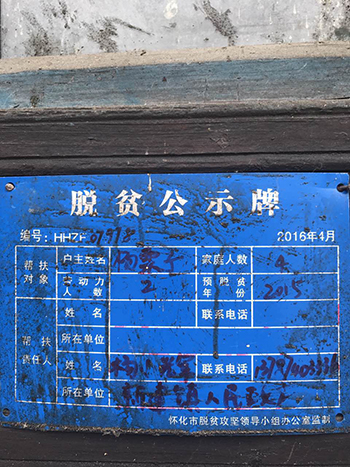 脱贫公示牌
编号：HHZF07978 2016年4月
帮扶对象 户主姓名 家庭人数 4
劳动力人数 2 预脱贫年份 2015
帮扶责任人 姓名 联系电话
所在单位
姓名 联系电话
所在单位 人民政府
怀化市脱贫攻坚领导小组办公室监制